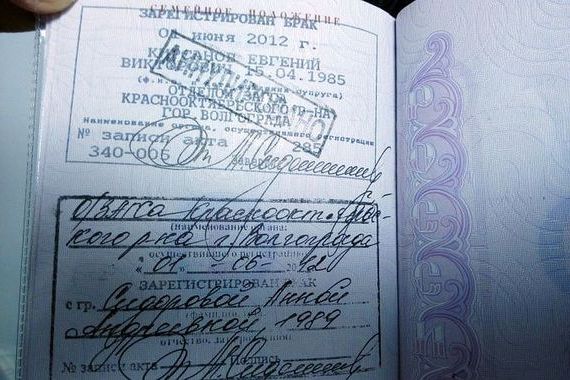 СЕМЕЙНОЕ ПОЛОЖЕНИЕ
ЗАРЕГИСТРИРОВАН БРАК
01 июня 2012 г.
ЕВГЕНИЙ
15.04.1985
ОТДЕЛОМ
КРАСНООКТЯБРЬСКОГО Р-НА
ГОР. ВОЛГОГРАДА
Наименование органа, осуществившего регистрации
№ записи акта 285
340-006
О/ЗАГСа Краснооктябрьс-
кого р-на г. Волгограда
(наименование органа,
осуществившего регистрацию)
"01" - 06 - 2012
ЗАРЕГИСТРИРОВАН БРАК
с гр. Сидоровой Анной
Андреевной, 1989
отчество, дата
№ записи акта Подпись